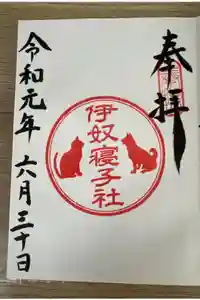 奉拝
伊奴寝子社
令和元年 六月三十日